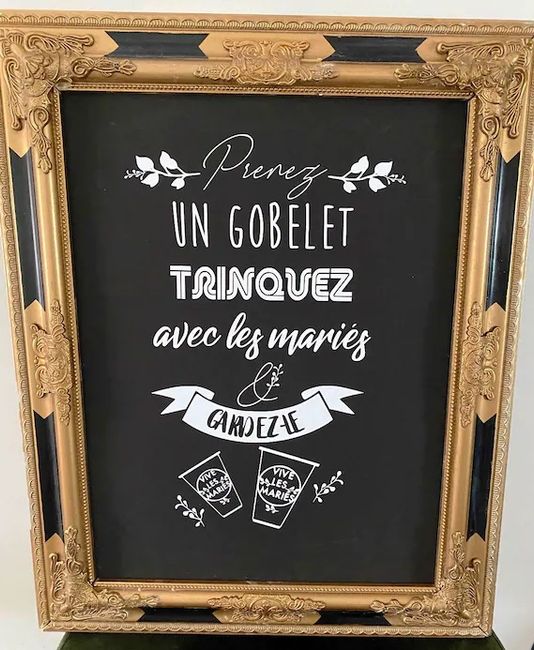 Prenez
UN GOBELET
TRINQUEZ
avec les mariés
&
GARDEZ-LE
VIVE
LES
MARIÉS
VIVE
LES
MARIÉS